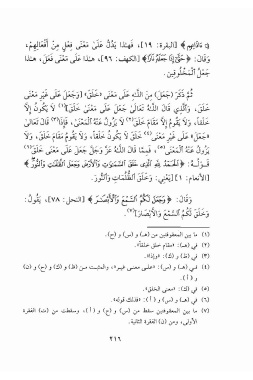 فِي آذَانِهِم﴾ [البقرة: ١٩]، فَهٰذا يَدُلُّ عَلَىٰ مَعْنَى فِعْلٍ مِنْ أَفْعَالِهِمْ،
وَقَالَ: ﴿حَتَّىٰ إِذَا جَعَلَهُ نَارًا﴾ [الكهف: ٩٦]، هٰذا عَلَىٰ مَعْنَى فَعَلَ، هٰذا
جَعْلُ الْمَخْلُوقِينَ.
ثُمَّ ذَكَرَ (جَعَلَ) مِنَ اللَّهِ عَلَىٰ مَعْنَى «خَلَقَ»، [وَجَعَلَ عَلَىٰ غَيْرِ مَعْنَى
خَلَقَ، وَالَّذِي قَالَ اللَّهُ تَعَالَىٰ جَعَلَ عَلَىٰ مَعْنَى خَلَقَ](١) لَا يَكُونُ إِلَّا
خَلْقاً، وَلَا يَقُومُ إِلَّا مَقَامَ خَلْقٍ(٢) لَا يَزُولُ عَنْهُ الْمَعْنَى، فَإِذَا(٣) قَالَ تَعَالَى
«جَعَلَ» عَلَىٰ غَيْرِ مَعْنَى(٤) خَلَقَ لَا يَكُونُ خَلْقاً، وَلَا يَقُومُ مَقَامَ خَلْقٍ، وَلَا
يَزُولُ عَنْهُ الْمَعْنَى(٥)، فَمِمَّا قَالَ اللَّهُ عَزَّ وَجَلَّ جَعَلَ عَلَىٰ مَعْنَى خَلَقَ(٦)
قَوْلُهُ: ﴿الْحَمْدُ لِلَّهِ الَّذِي خَلَقَ السَّمَوَاتِ وَالْأَرْضَ وَجَعَلَ الظُّلُمَاتِ وَالنُّورَ﴾
[الأنعام: ١] يَعْنِي: وَخَلَقَ الظُّلُمَاتِ وَالنُّورَ.
وَقَالَ: ﴿وَجَعَلَ لَكُمُ السَّمْعَ وَالْأَبْصَارَ﴾ [النحل: ٧٨]، يَقُولُ:
وَخَلَقَ لَكُمُ السَّمْعَ وَالْأَبْصَارَ](٧).
(١) ما بين المعقوفين من (هـ) و (س) و (ح).
(٢) في (هـ): «مقام خلق خلقاً».
(٣) في (ظ) و (ك): «وإذا».
(٤) في (هـ) و (س): «على معنى غير»، والمثبت من (ظ) و (ك) و (ح) و (ن)
و (أ).
(٥) في (ك): «معنى الخلق».
(٦) في (هـ) و (س) و (أ): «فذلك قوله».
(٧) ما بين المعقوفين سقط من (س) و (ح) و (أ)، وسقطت من (ت) الفقرة
الأولى، ومن (ن) الفقرة الثانية.
٢١٦